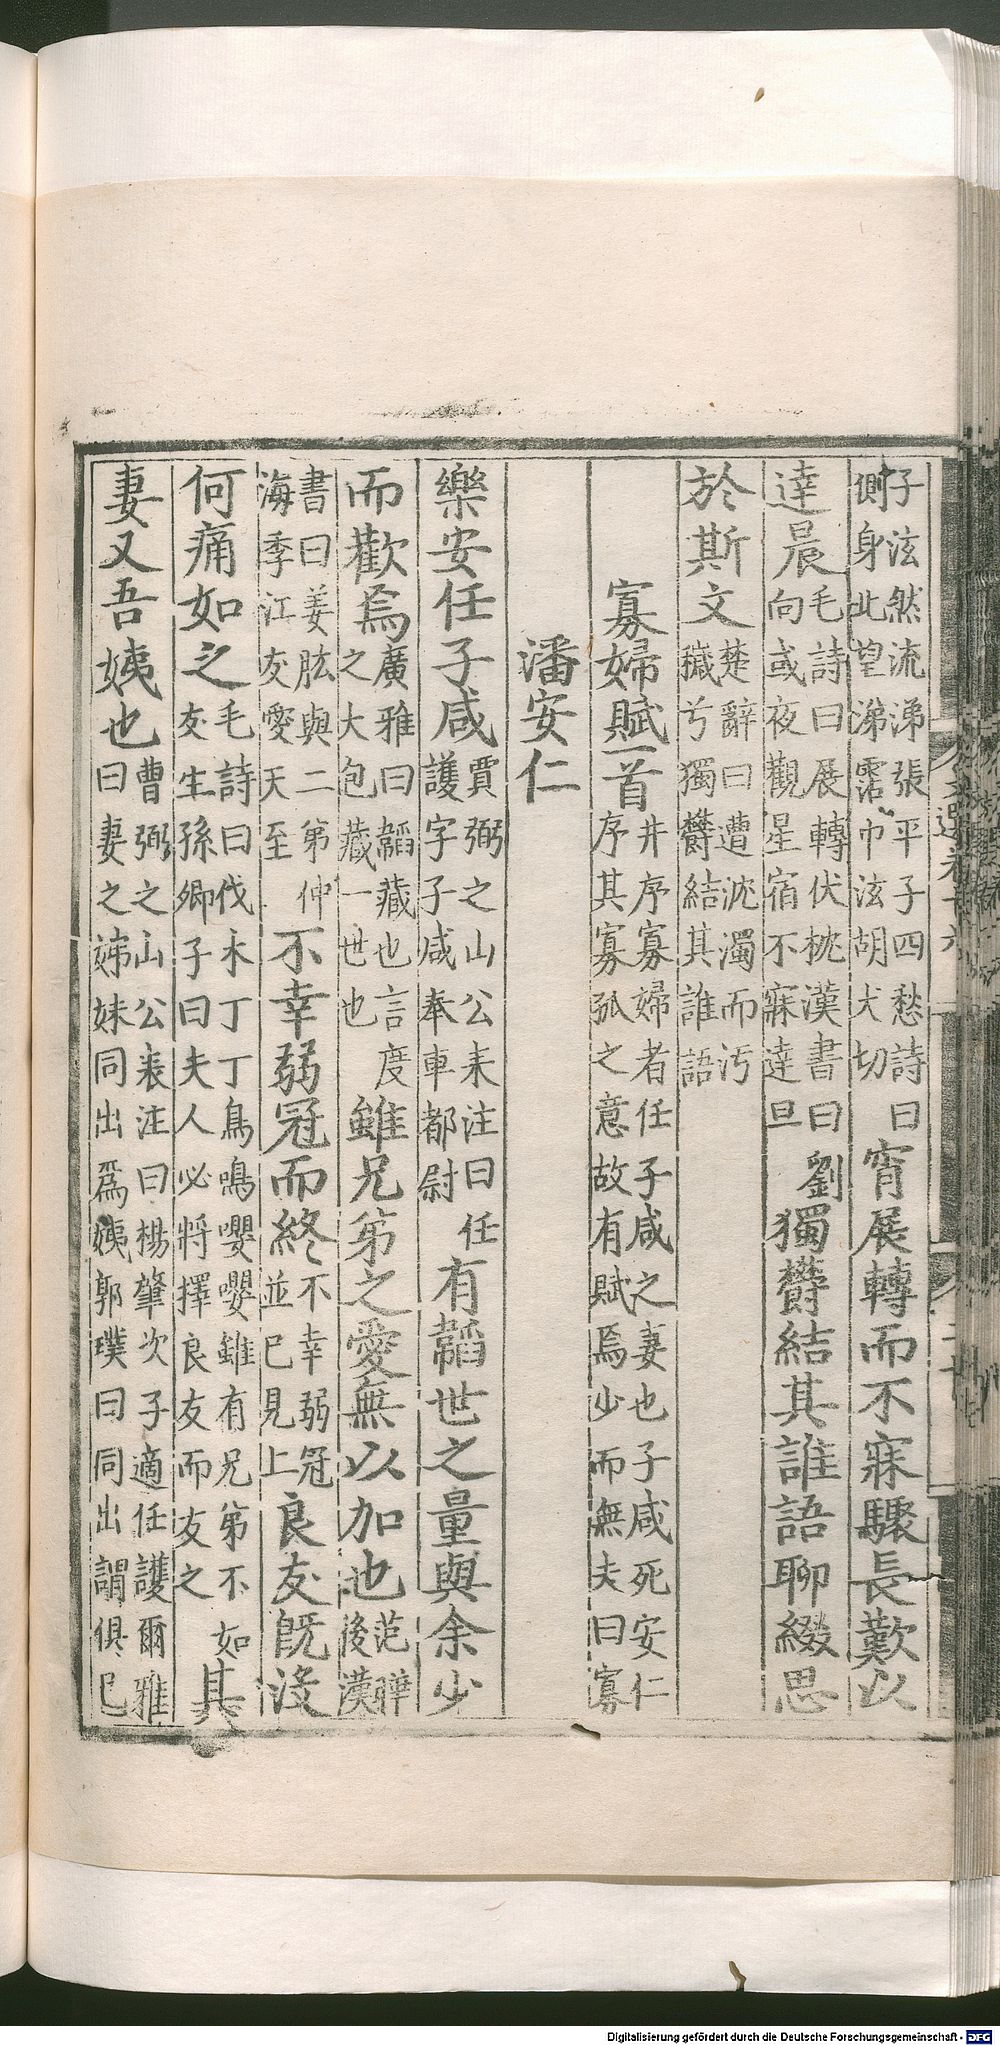 子泫然流涕張平子四愁詩曰
側身北望涕霑巾泫胡犬切
宵展轉而不寐驟長歎以
達晨
毛詩曰展轉伏枕漢書曰劉
向或夜觀星宿不寐達旦
獨欝結其誰語聊綴思
於斯文
楚辭曰遭沈濁而汚
穢兮獨欝結其誰語
寡婦賦一首
并序寡婦者任子咸之妻也子咸死安仁
序其寡孤之意故有賦焉少而無夫曰寡
潘安仁
樂安任子咸
賈弼之山公表注曰任
護字子咸奉車都尉
有韜世之量與余少
而歡焉
廣雅曰韜藏也言度
之大包藏一世也
雖兄弟之愛無以加也
范曄
後漢
書曰姜肱與二弟仲
海季江友愛天至
不幸弱冠而終
不幸弱冠
並已見上
良友旣没
何痛如之
毛詩曰伐木丁丁鳥鳴嚶嚶雖有兄弟不如
友生孫卿子曰夫人必將擇良友而友之
其
妻又吾姨也
曹弼之山公表注曰楊肇次子適任護爾雅
曰妻之姊妹同出爲姨郭璞曰同出謂俱已
Digitalisierung gefördert durch die Deutsche Forschungsgemeinschaft - DFG